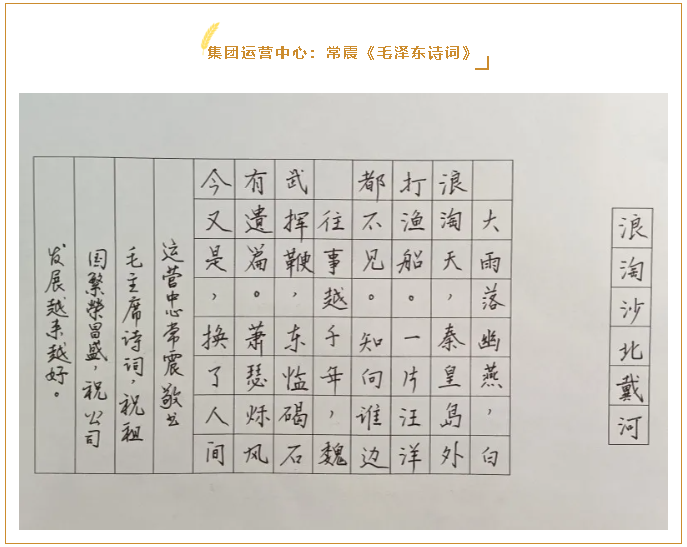 集团运营中心：常震《毛泽东诗词》
浪淘沙北戴河
大雨落幽燕，白
浪淘天，秦皇岛外
打渔船。一片汪洋
都不见。知向谁边
往事越千年，魏
武挥鞭，东临碣石
有遺篇。萧瑟烁风
今又是，换了人间
运营中心常震敬书
毛主席诗词，祝祖
国繁荣昌盛，祝公司
发展越来越好。